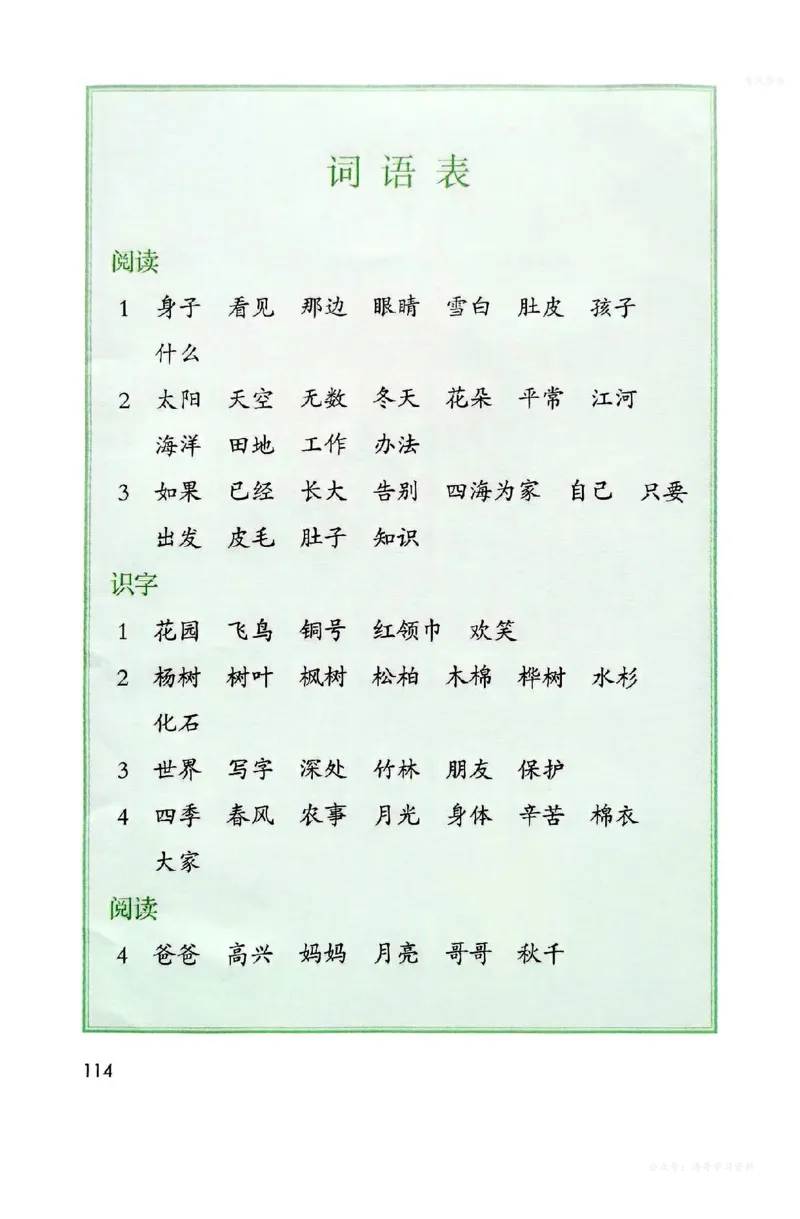 词语表
阅读
1 身子 看见 那边 眼睛 雪白 肚皮 孩子
什么
2 太阳 天空 无数 冬天 花朵 平常 江河
海洋 田地 工作 办法
3 如果 已经 长大 告别 四海为家 自己 只要
出发 皮毛 肚子 知识
识字
1 花园 飞鸟 铜号 红领巾 欢笑
2 杨树 树叶 枫树 松柏 木棉 桦树 水杉
化石
3 世界 写字 深处 竹林 朋友 保护
4 四季 春风 农事 月光 身体 辛苦 棉衣
大家
阅读
4 爸爸 高兴 妈妈 月亮 哥哥 秋千
114